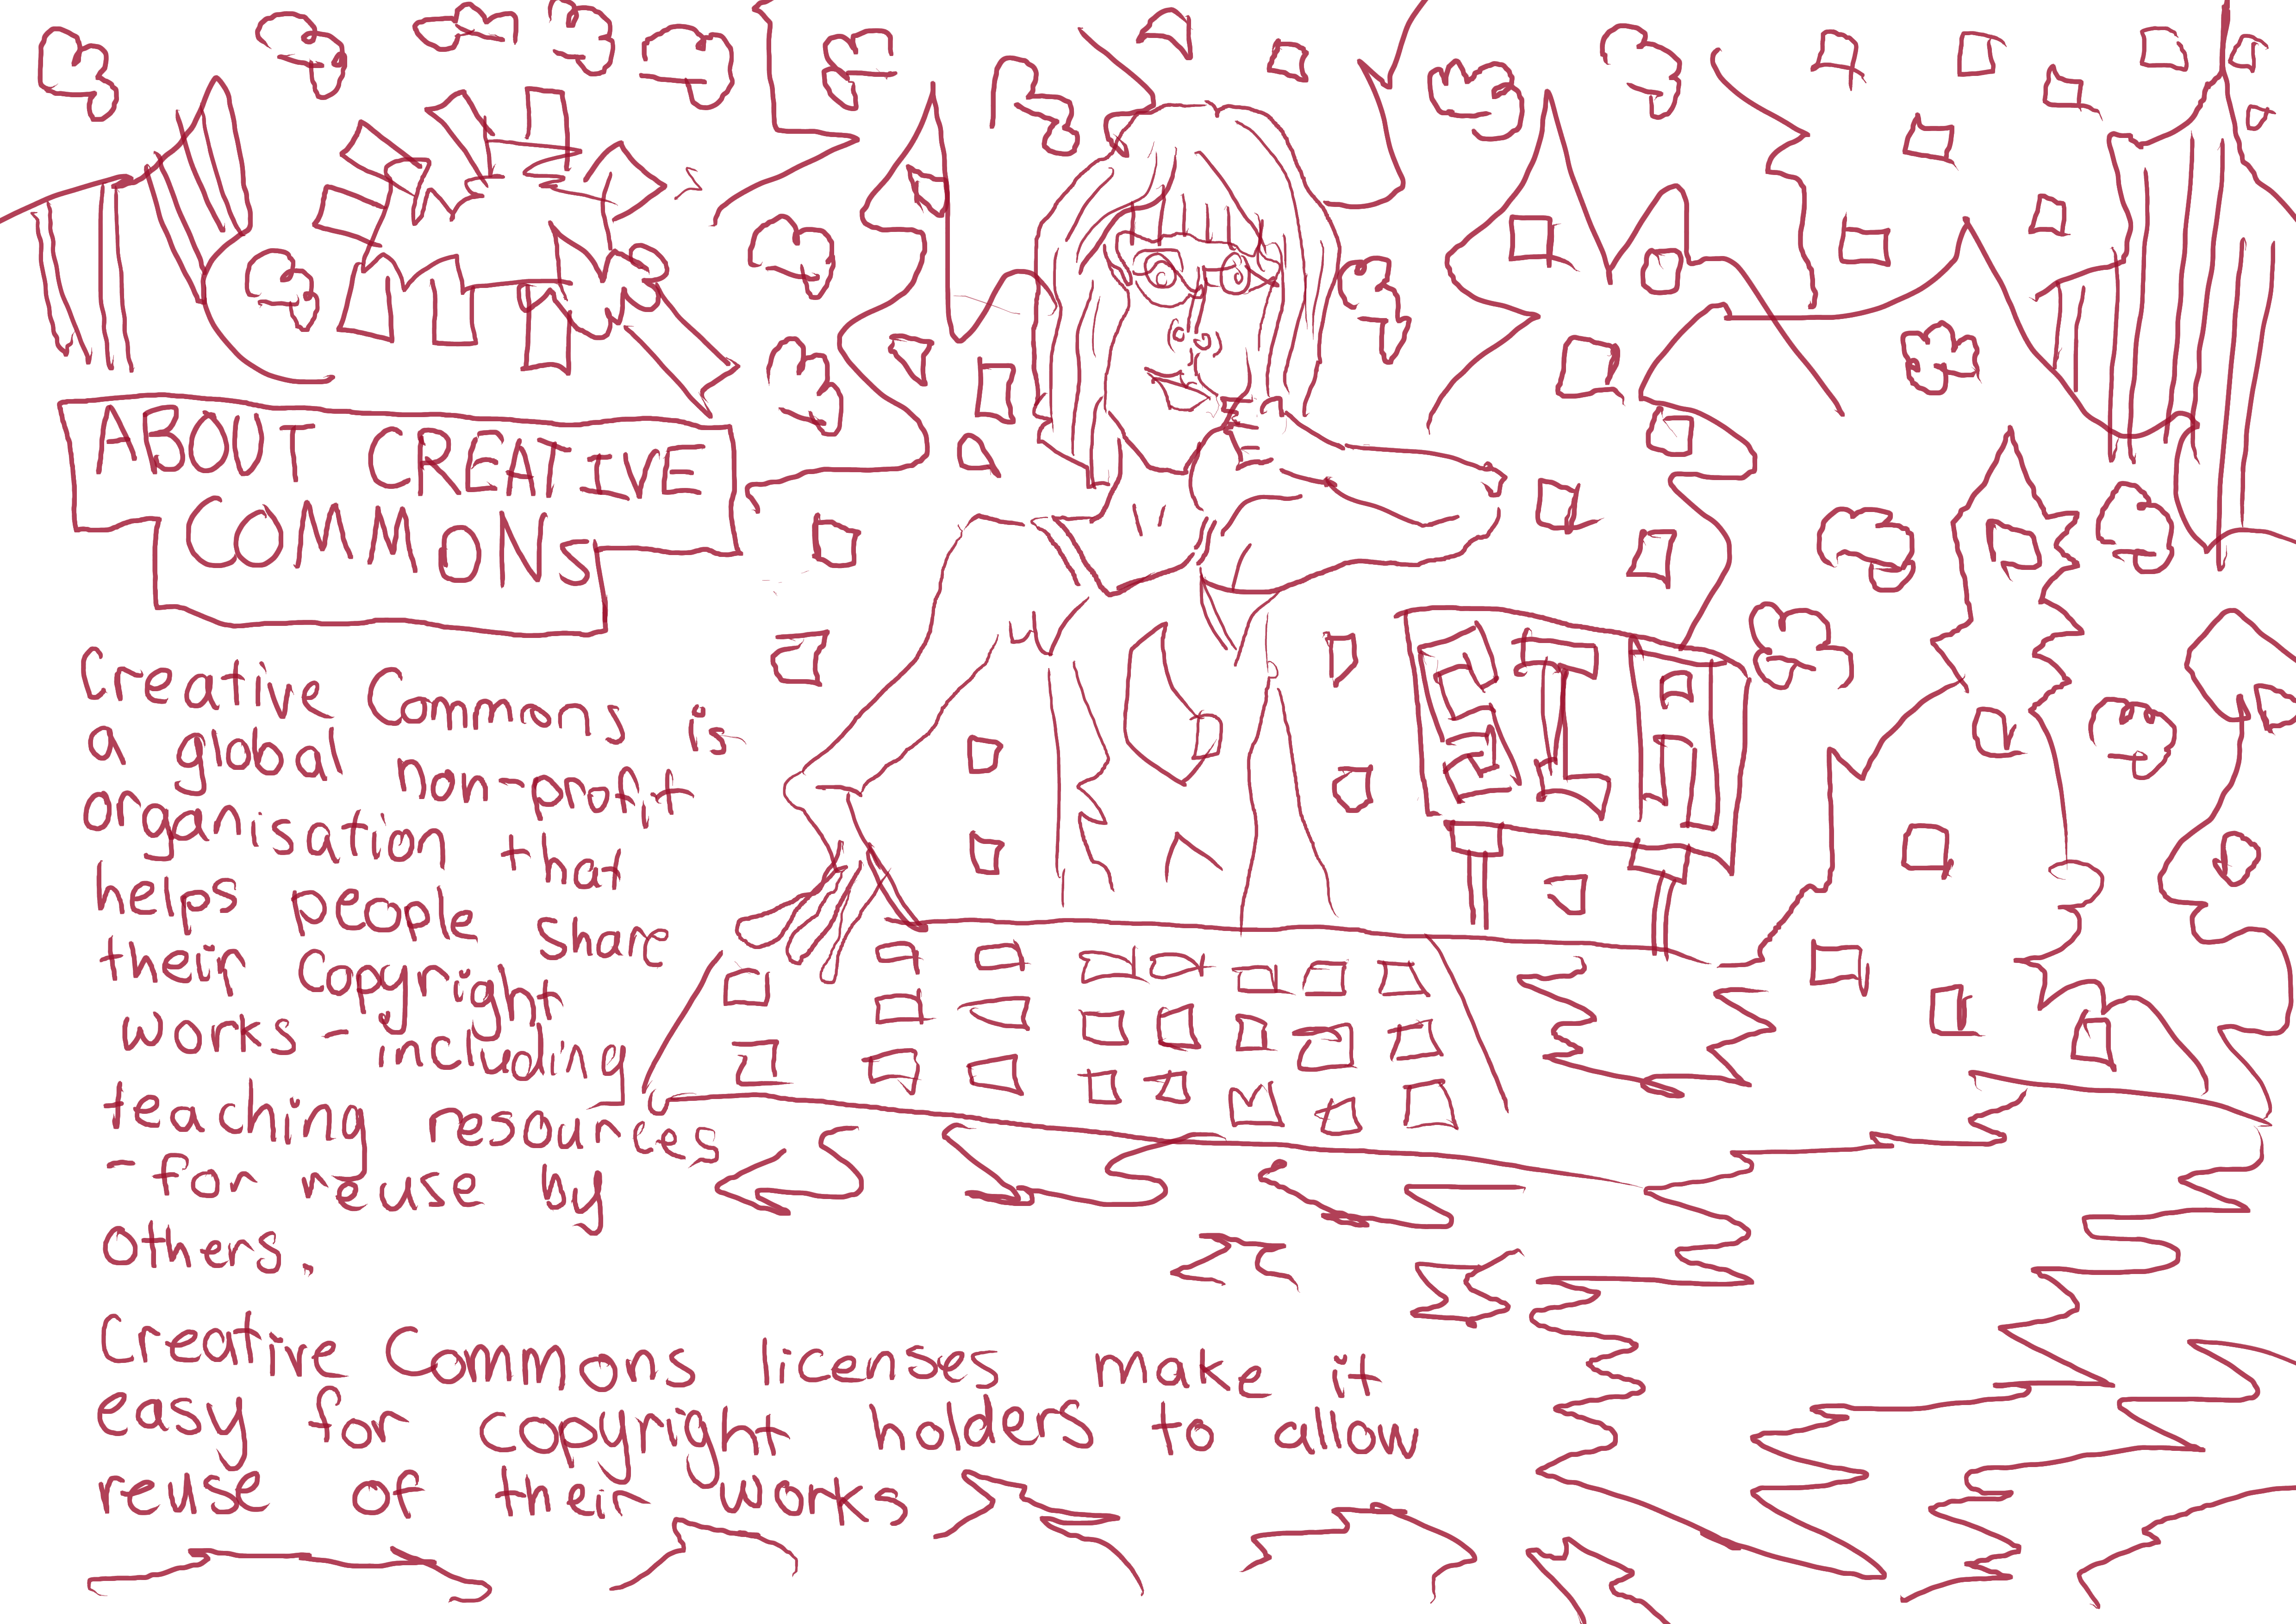 ABOUT CREATIVE
COMMONS
Creative Commons is
a global non-profit
organisation that
helps people share
their copyright
works - including
teaching resources
- for reuse by
others.
Creative Commons licenses make it
easy for copyright holders to allow
reuse of their works